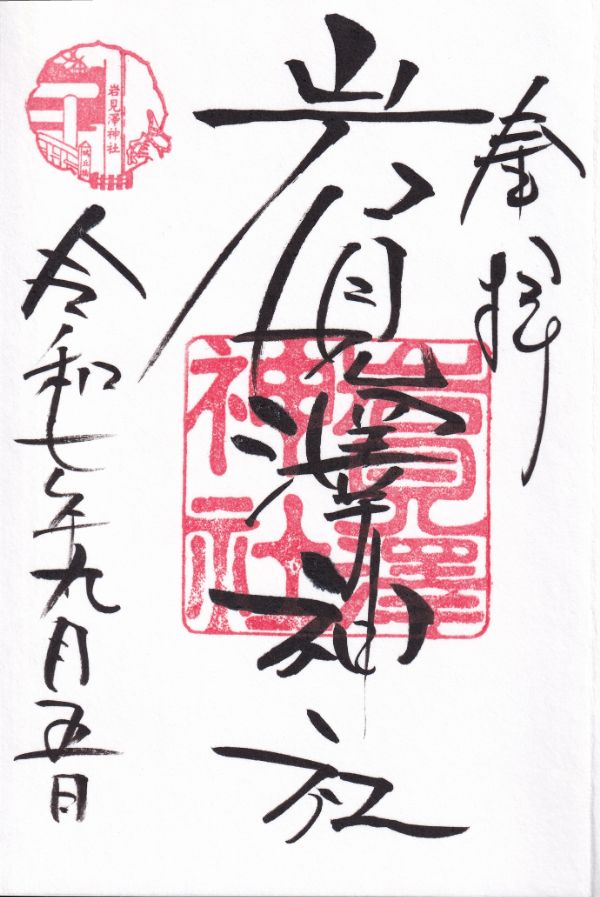 奉拝
岩見澤神社
岩見澤
神社
令和七年九月五日
岩見澤神社